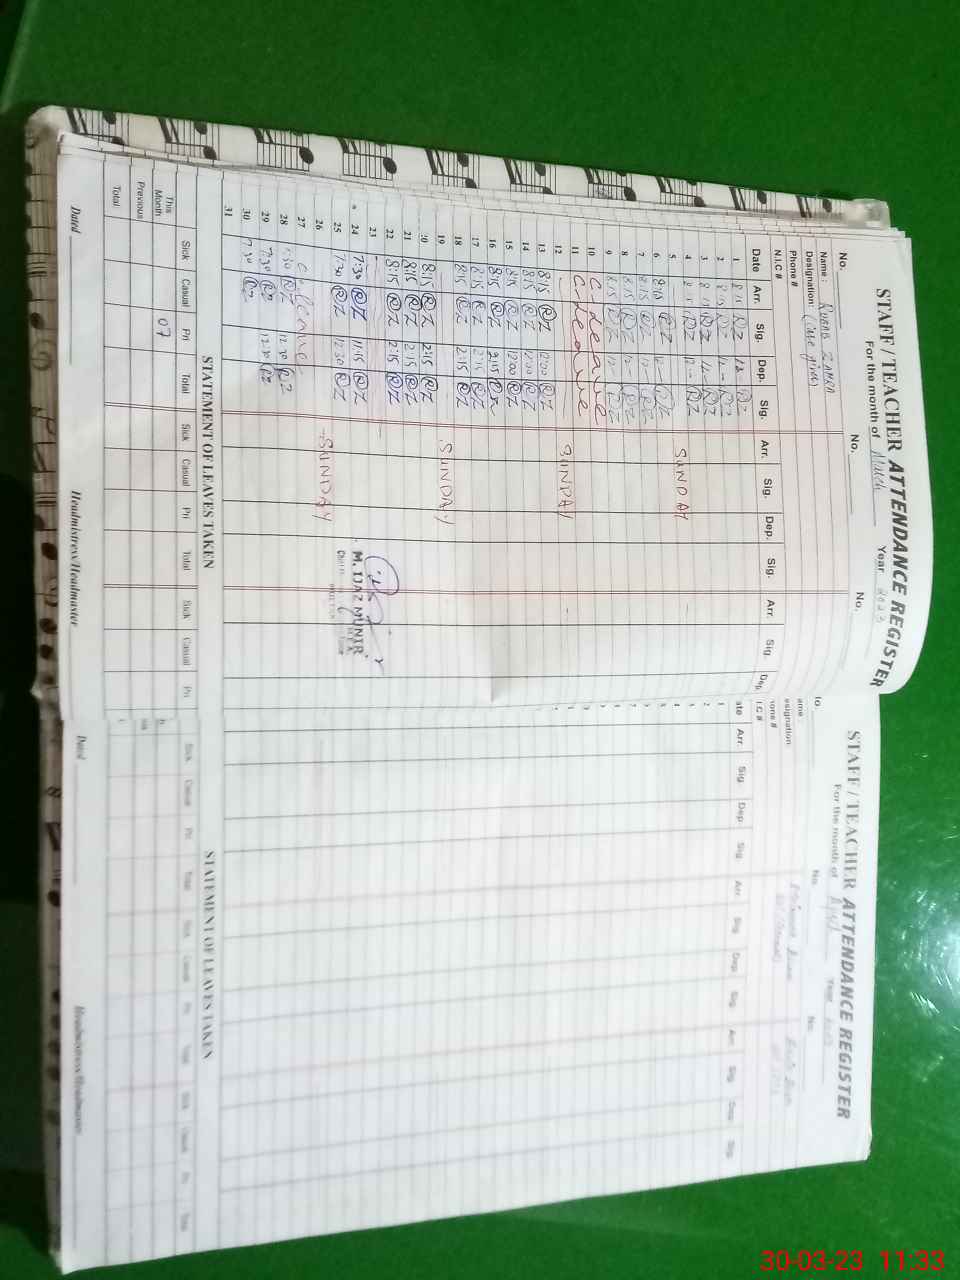 No. No. No.
STAFF / TEACHER ATTENDANCE REGISTER
For the month of March Year 2023
Name: RUBAB ZAHRA
Designation: (Care giver)
Phone #
N.I.C #
Date Arr. Sig. Dep. Sig. Arr. Sig. Dep. Sig. Arr. Sig. Dep.
1 8:15 RZ 12 RZ
2 8:15 RZ 12- RZ
3 8:15 RZ 12- RZ
4 8:15 RZ 12- RZ
5 SUNDAY
6 8:15 RZ 12- RZ
7 8:15 RZ 12- RZ
8 8:15 RZ 12- RZ
9 8:15 RZ 12- RZ
10 C-leave
11 C-leave
12 SUNDAY
13 8:15 RZ 12:00 RZ
14 8:15 RZ 12:00 RZ
15 8:15 RZ 12:00 RZ
16 8:15 RZ 2:15 RZ
17 8:15 RZ 2:15 RZ
18 8:15 RZ 2:15 RZ
19 SUNDAY
20 8:15 RZ 2:15 RZ
21 8:15 RZ 2:15 RZ
22 8:15 RZ 2:15 RZ
23
24 7:30 RZ 11:15 RZ
25 7:30 RZ 12:30 RZ
26 SUNDAY
27 C-leave
28 7:30 RZ 12:30 RZ
29 7:30 RZ 12:30 RZ
30 7:30 RZ
31
M. IJAZ MUNIR
STATEMENT OF LEAVES TAKEN
Sick Casual Pri Total Sick Casual Pri Total Sick Casual Pri
This Month 07
Previous
Total
Dated Headmistress/Headmaster
STAFF / TEACHER ATTENDANCE REGISTER
For the month of April Year
No. No.
Arr. Sig. Dep. Sig. Arr. Sig. Dep. Sig. Arr. Sig. Dep. Sig.
STATEMENT OF LEAVES TAKEN STATEMENT OF LEAVES TAKEN
Sick Casual Pri Total Sick Casual Pri Total Sick Casual Pri Total
Dated Headmistress/Headmaster
30-03-23 11:33